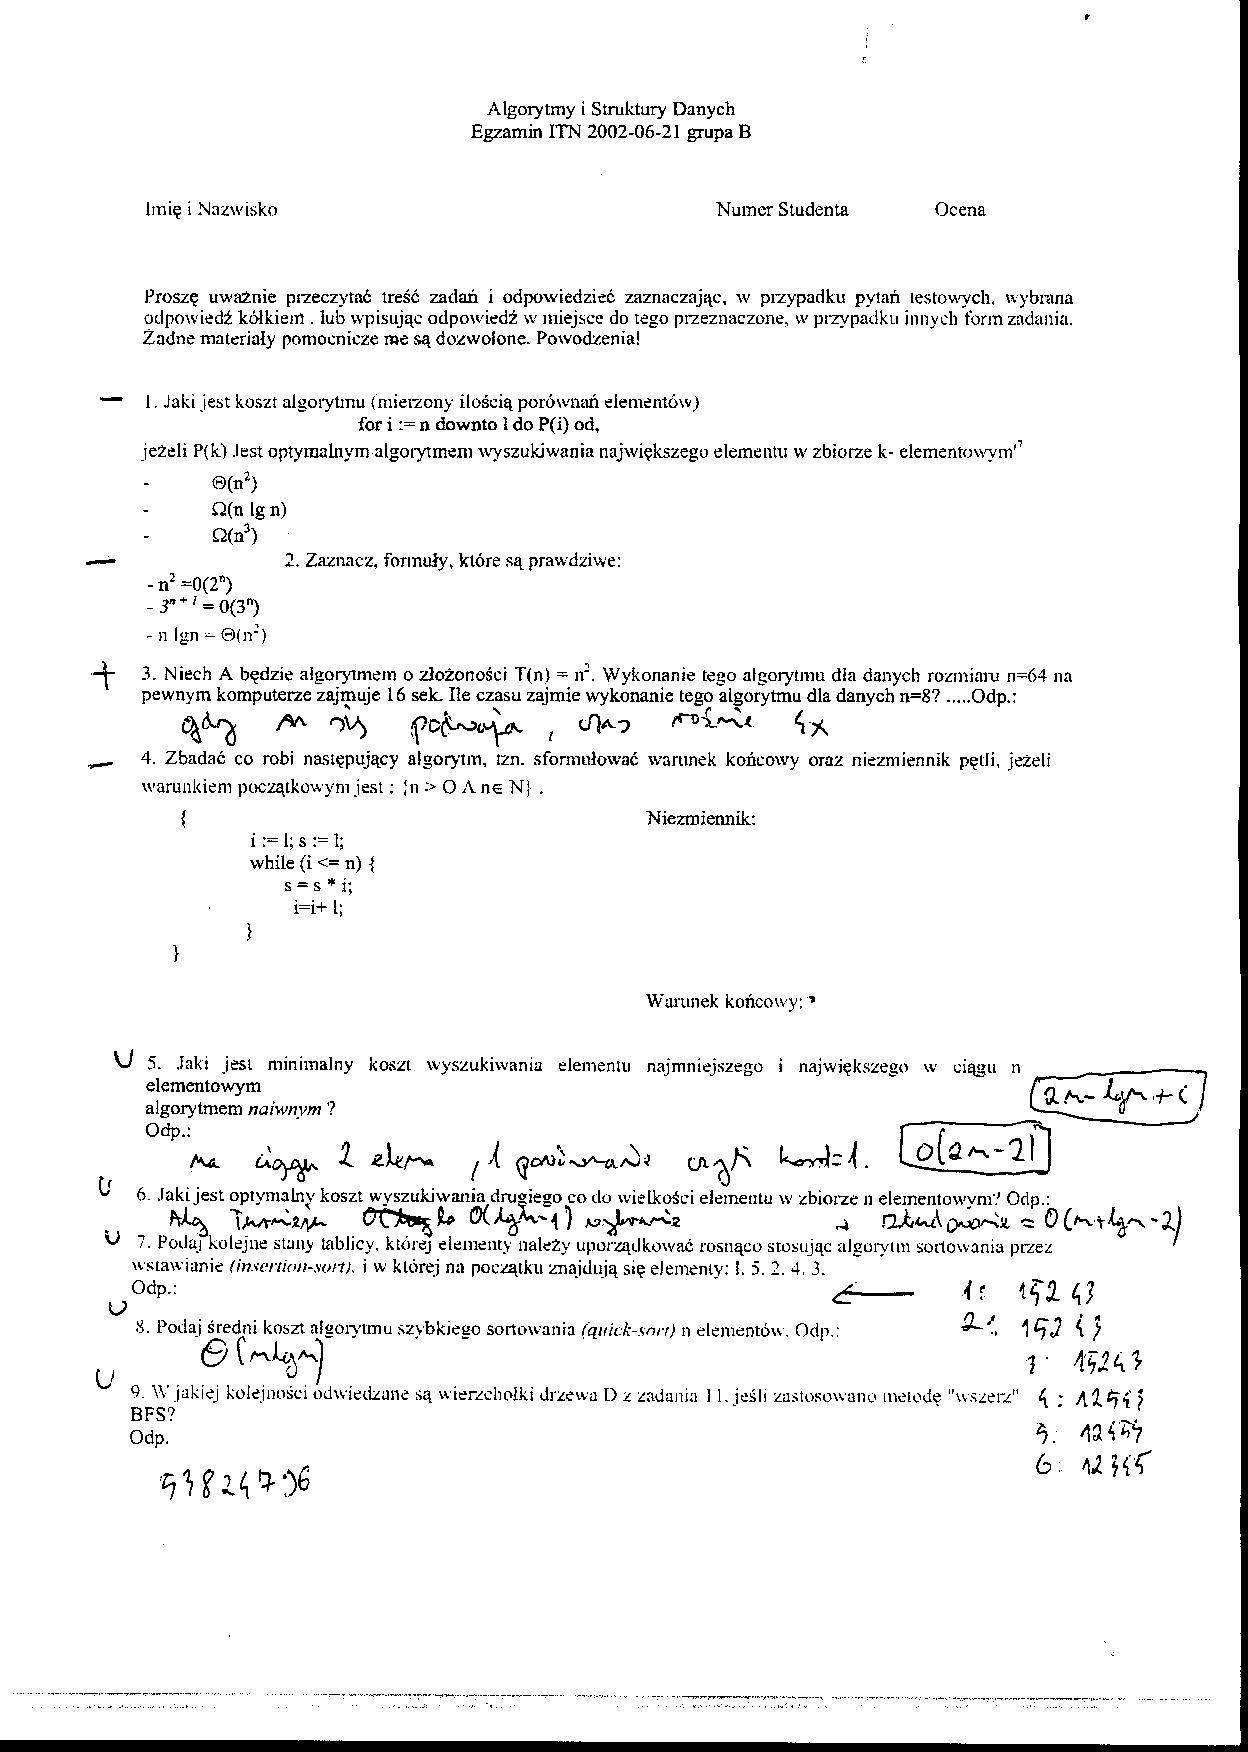 Algorytmy i Struktury Danych
Egzamin ITN 2002-06-21 grupa B
Imię i Nazwisko Numer Studenta Ocena
Proszę uważnie przeczytać treść zadań i odpowiedzieć zaznaczając, w przypadku pytań testowych, wybrana
odpowiedź kółkiem . lub wpisując odpowiedź w miejsce do tego przeznaczone, w przypadku innych form zadania.
Żadne materiały pomocnicze nie są dozwolone. Powodzenia!
1. Jaki jest koszt algorytmu (mierzony ilością porównań elementów)
for i := n downto l do P(i) od,
jeżeli P(k) Jest optymalnym algorytmem wyszukiwania największego elementu w zbiorze k- elementowym'?
- Θ(n²)
- Ω(n lg n)
- Ω(n³)
2. Zaznacz, formuły, które są prawdziwe:
- n² =0(2ⁿ)
- 3ⁿ⁺¹ = 0(3ⁿ)
- n lgn = Θ(n²)
+ 3. Niech A będzie algorytmem o złożoności T(n) = n². Wykonanie tego algorytmu dla danych rozmiaru n=64 na
pewnym komputerze zajmuje 16 sek. Ile czasu zajmie wykonanie tego algorytmu dla danych n=8? .....Odp.:
gdy n się podwaja, czas rośnie 4x
4. Zbadać co robi następujący algorytm, tzn. sformułować warunek końcowy oraz niezmiennik pętli, jeżeli
warunkiem początkowym jest : {n > O Λ n∈ N} .
{ Niezmiennik:
i := l; s := l;
while (i <= n) {
s = s * i;
i=i+ l;
}
}
Warunek końcowy:
5. Jaki jest minimalny koszt wyszukiwania elementu najmniejszego i największego w ciągu n
elementowym
2n - lgn +
algorytmem naiwnym ?
Odp.:
na ciągu 2 elem, 1 porównanie czyli koszt=1. O(2n-2)
6. Jaki jest optymalny koszt wyszukiwania drugiego co do wielkości elementu w zbiorze n elementowym? Odp.:
Alg Turnieju O(lgn-1) wybranie → zbudowanie = O(n+lgn-2)
7. Podaj kolejne stany tablicy, której elementy należy uporządkować rosnąco stosując algorytm sortowania przez
wstawianie (insertion-sort), i w której na początku znajdują się elementy: l. 5. 2. 4. 3.
Odp.: ← 1: 15243
8. Podaj średni koszt algorytmu szybkiego sortowania (quick-sort) n elementów. Odp.: 2: 15243
Θ(nlgn) 3: 15243
9. W jakiej kolejności odwiedzane są wierzchołki drzewa D z zadania 11. jeśli zastosowano metodę "wszerz" 4: 12543
BFS?
Odp. 5: 12453
6: 12345